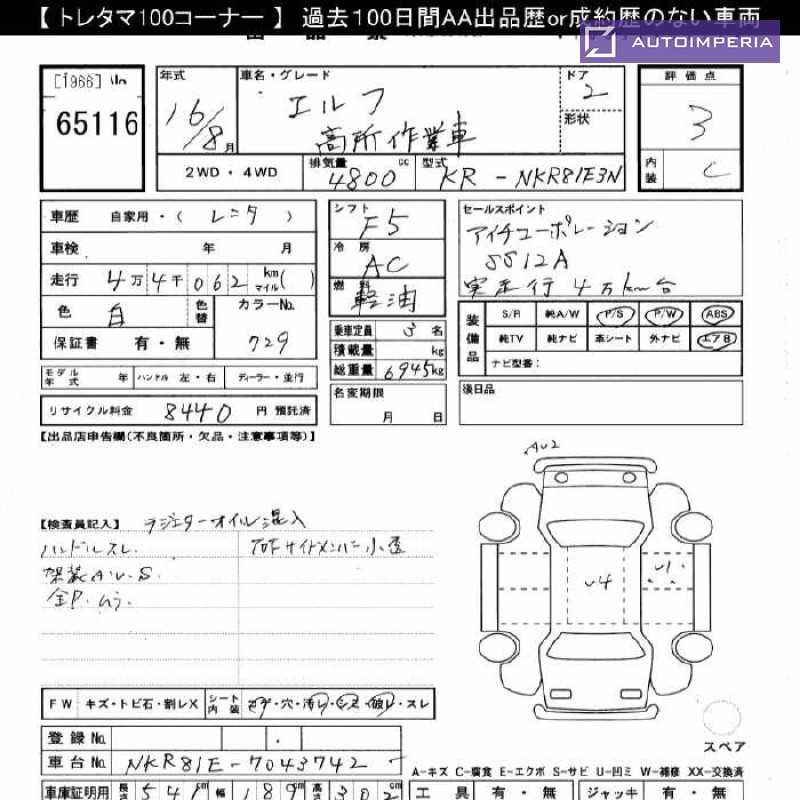 【 トレタマ100コーナー 】 過去100日間AA出品歴or成約歴のない車両
AUTOIMPERIA
65116
年式
16/8月
車名・グレード
エルフ
高所作業車
ドア
2
形状
評価点
3
内装
C
2WD・4WD
排気量 4800 cc
型式 KR-NKR81E3N
車歴 自家用・( レンタ )
車検 年 月
走行 4万4千062 km マイル( )
色 白 色替
カラーNo. 729
保証書 有・無
モデル年式 年 ハンドル 左・右 ディーラー・並行
リサイクル料金 8440 円 預託済
シフト F5
冷房 AC
燃料 軽油
乗車定員 3 名
積載量 kg
総重量 6945kg
名変期限
月 日
セールスポイント
アイチコーポレーション
SS12A
実走行 4万km台
装備品
S/R 純A/W P/S P/W ABS
純TV 純ナビ 革シート 外ナビ エアB
ナビ型番：
後日品
【出品店申告欄(不良箇所・欠品・注意事項等)】
【検査員記入】 ラジエターオイル混入
ハンドルスレ.
架装A.U.S.
全P.ムラ.
AU2
U4
U1
FW キズ・トビ石・割レX
シート内装 コゲ・穴・汚レ・シミ・破レ・スレ
スペア
登録No.
車台No. NKR81E-7043742
A-キズ C-腐食 E-エクボ S-サビ U-凹ミ W-補修 XX-交換済
車庫証明用 長さ 541 幅 189 高さ 302
工具 有・無 ジャッキ 有・無